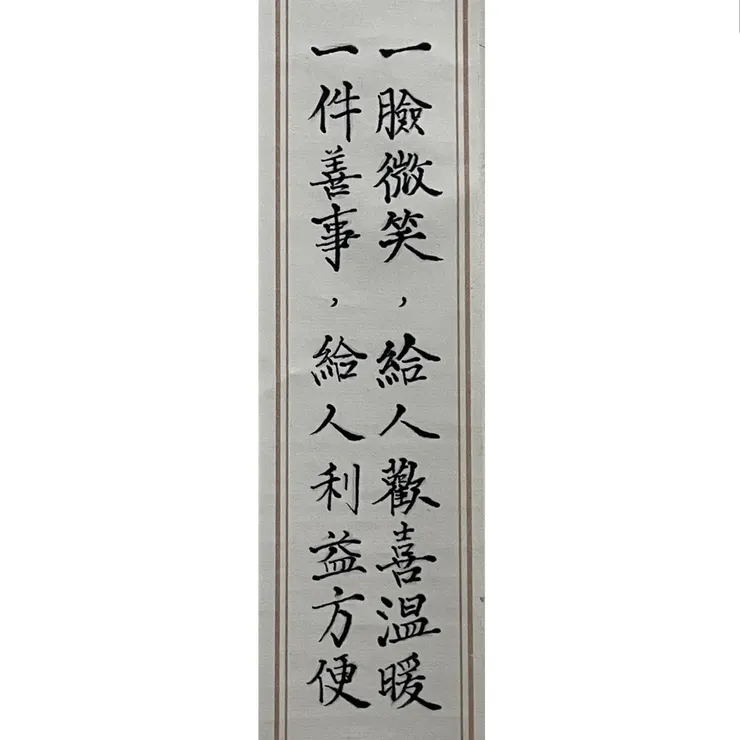 一臉微笑，給人歡喜温暖
一件善事，給人利益方便